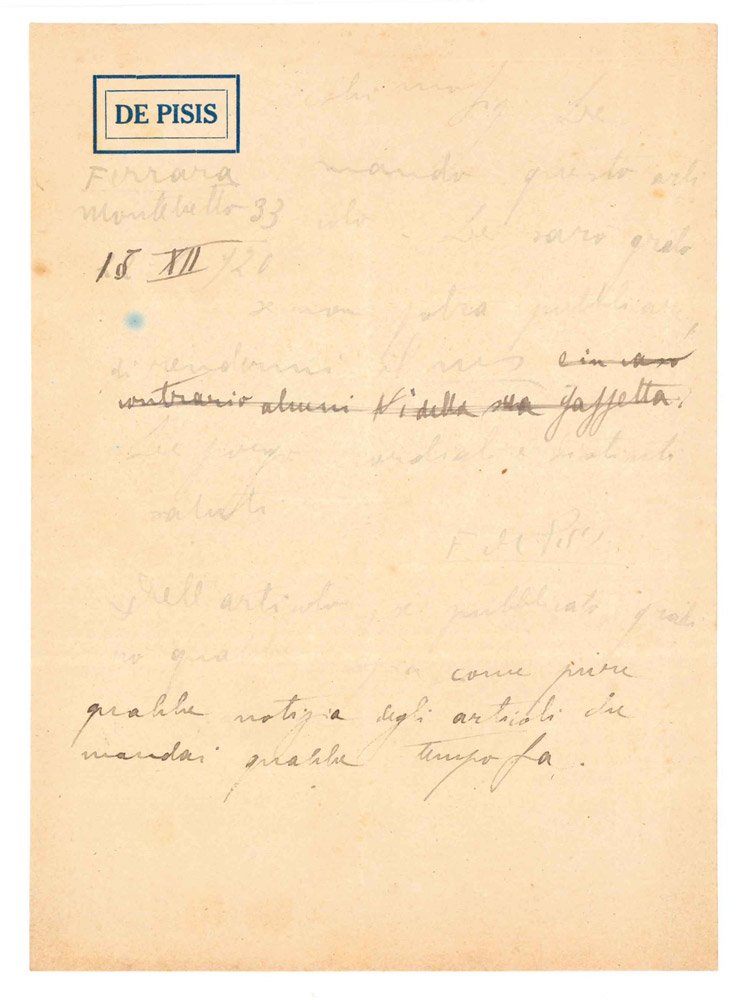 DE PISIS
Ferrara
Montebello 33
18 XII 920
Le
mando questo arti
colo. Le sarò grato
se non potrà pubblicare,
di rendermi il ms e in caso
contrario alcuni Ni della sua Gazzetta.
Le porgo cordiali e distinti
saluti
F de Pisis
Dell'articolo, se pubblicato gradi
come pure
qualche notizia degli articoli che
mandai qualche tempo fa.